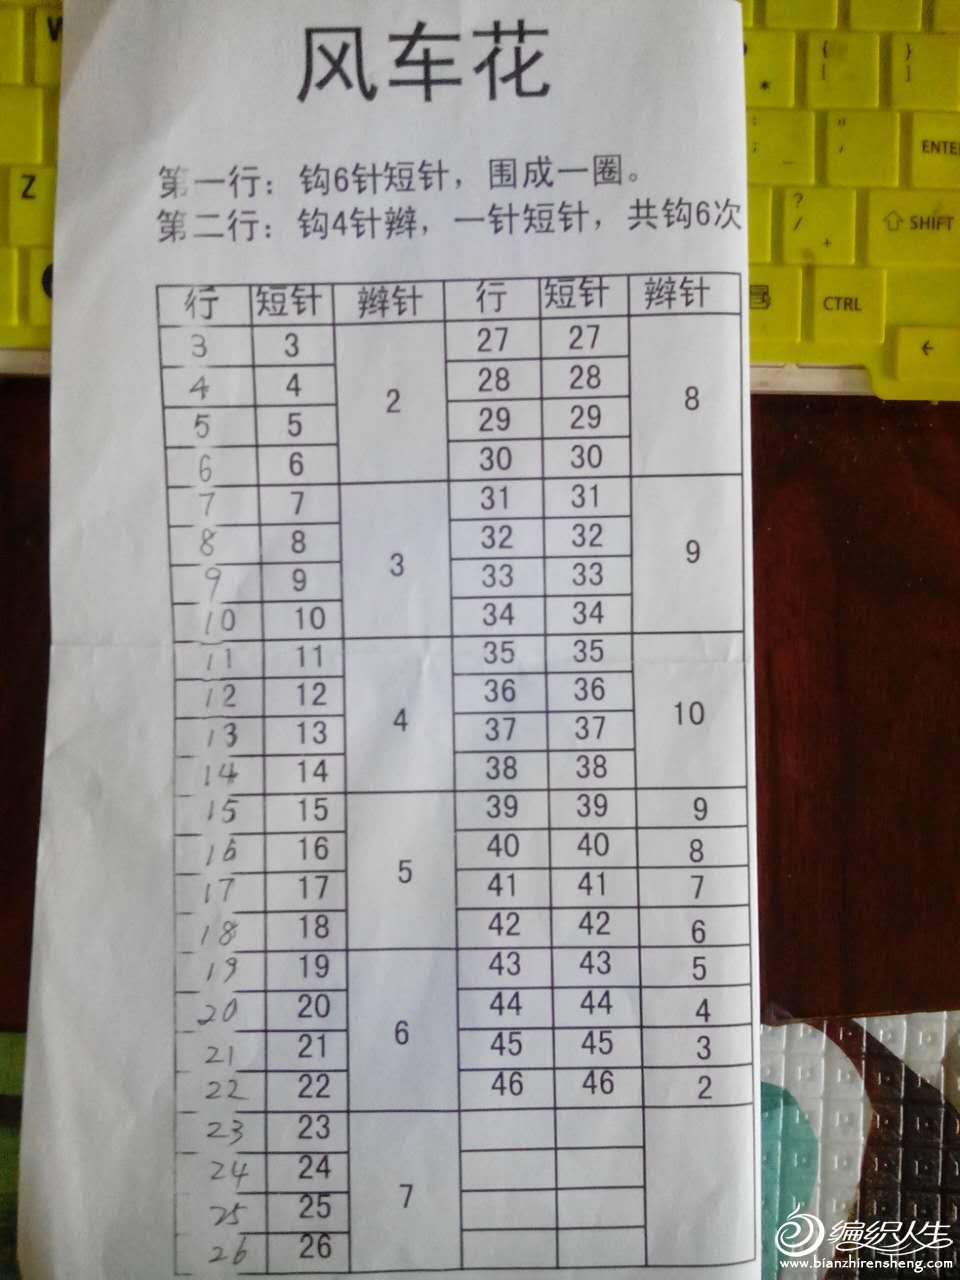 风车花
第一行：钩6针短针，围成一圈。
第二行：钩4针辫，一针短针，共钩6次
行 短针 辫针 行 短针 辫针
3 3 2 27 27 8
4 4 28 28
5 5 29 29
6 6 30 30
7 7 3 31 31 9
8 8 32 32
9 9 33 33
10 10 34 34
11 11 4 35 35 10
12 12 36 36
13 13 37 37
14 14 38 38
15 15 5 39 39 9
16 16 40 40 8
17 17 41 41 7
18 18 42 42 6
19 19 6 43 43 5
20 20 44 44 4
21 21 45 45 3
22 22 46 46 2
23 23 7
24 24
25 25
26 26
Z
ENTER
SHIFT
CTRL
编织人生
www.bianzhirensheng.com